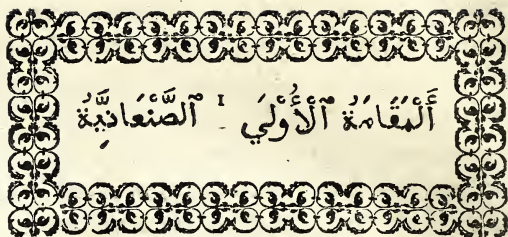 أَلْمَقَامَةُ ٱلْأُوْلَي ١ ٱلصَّنْعَانِيَّةُ